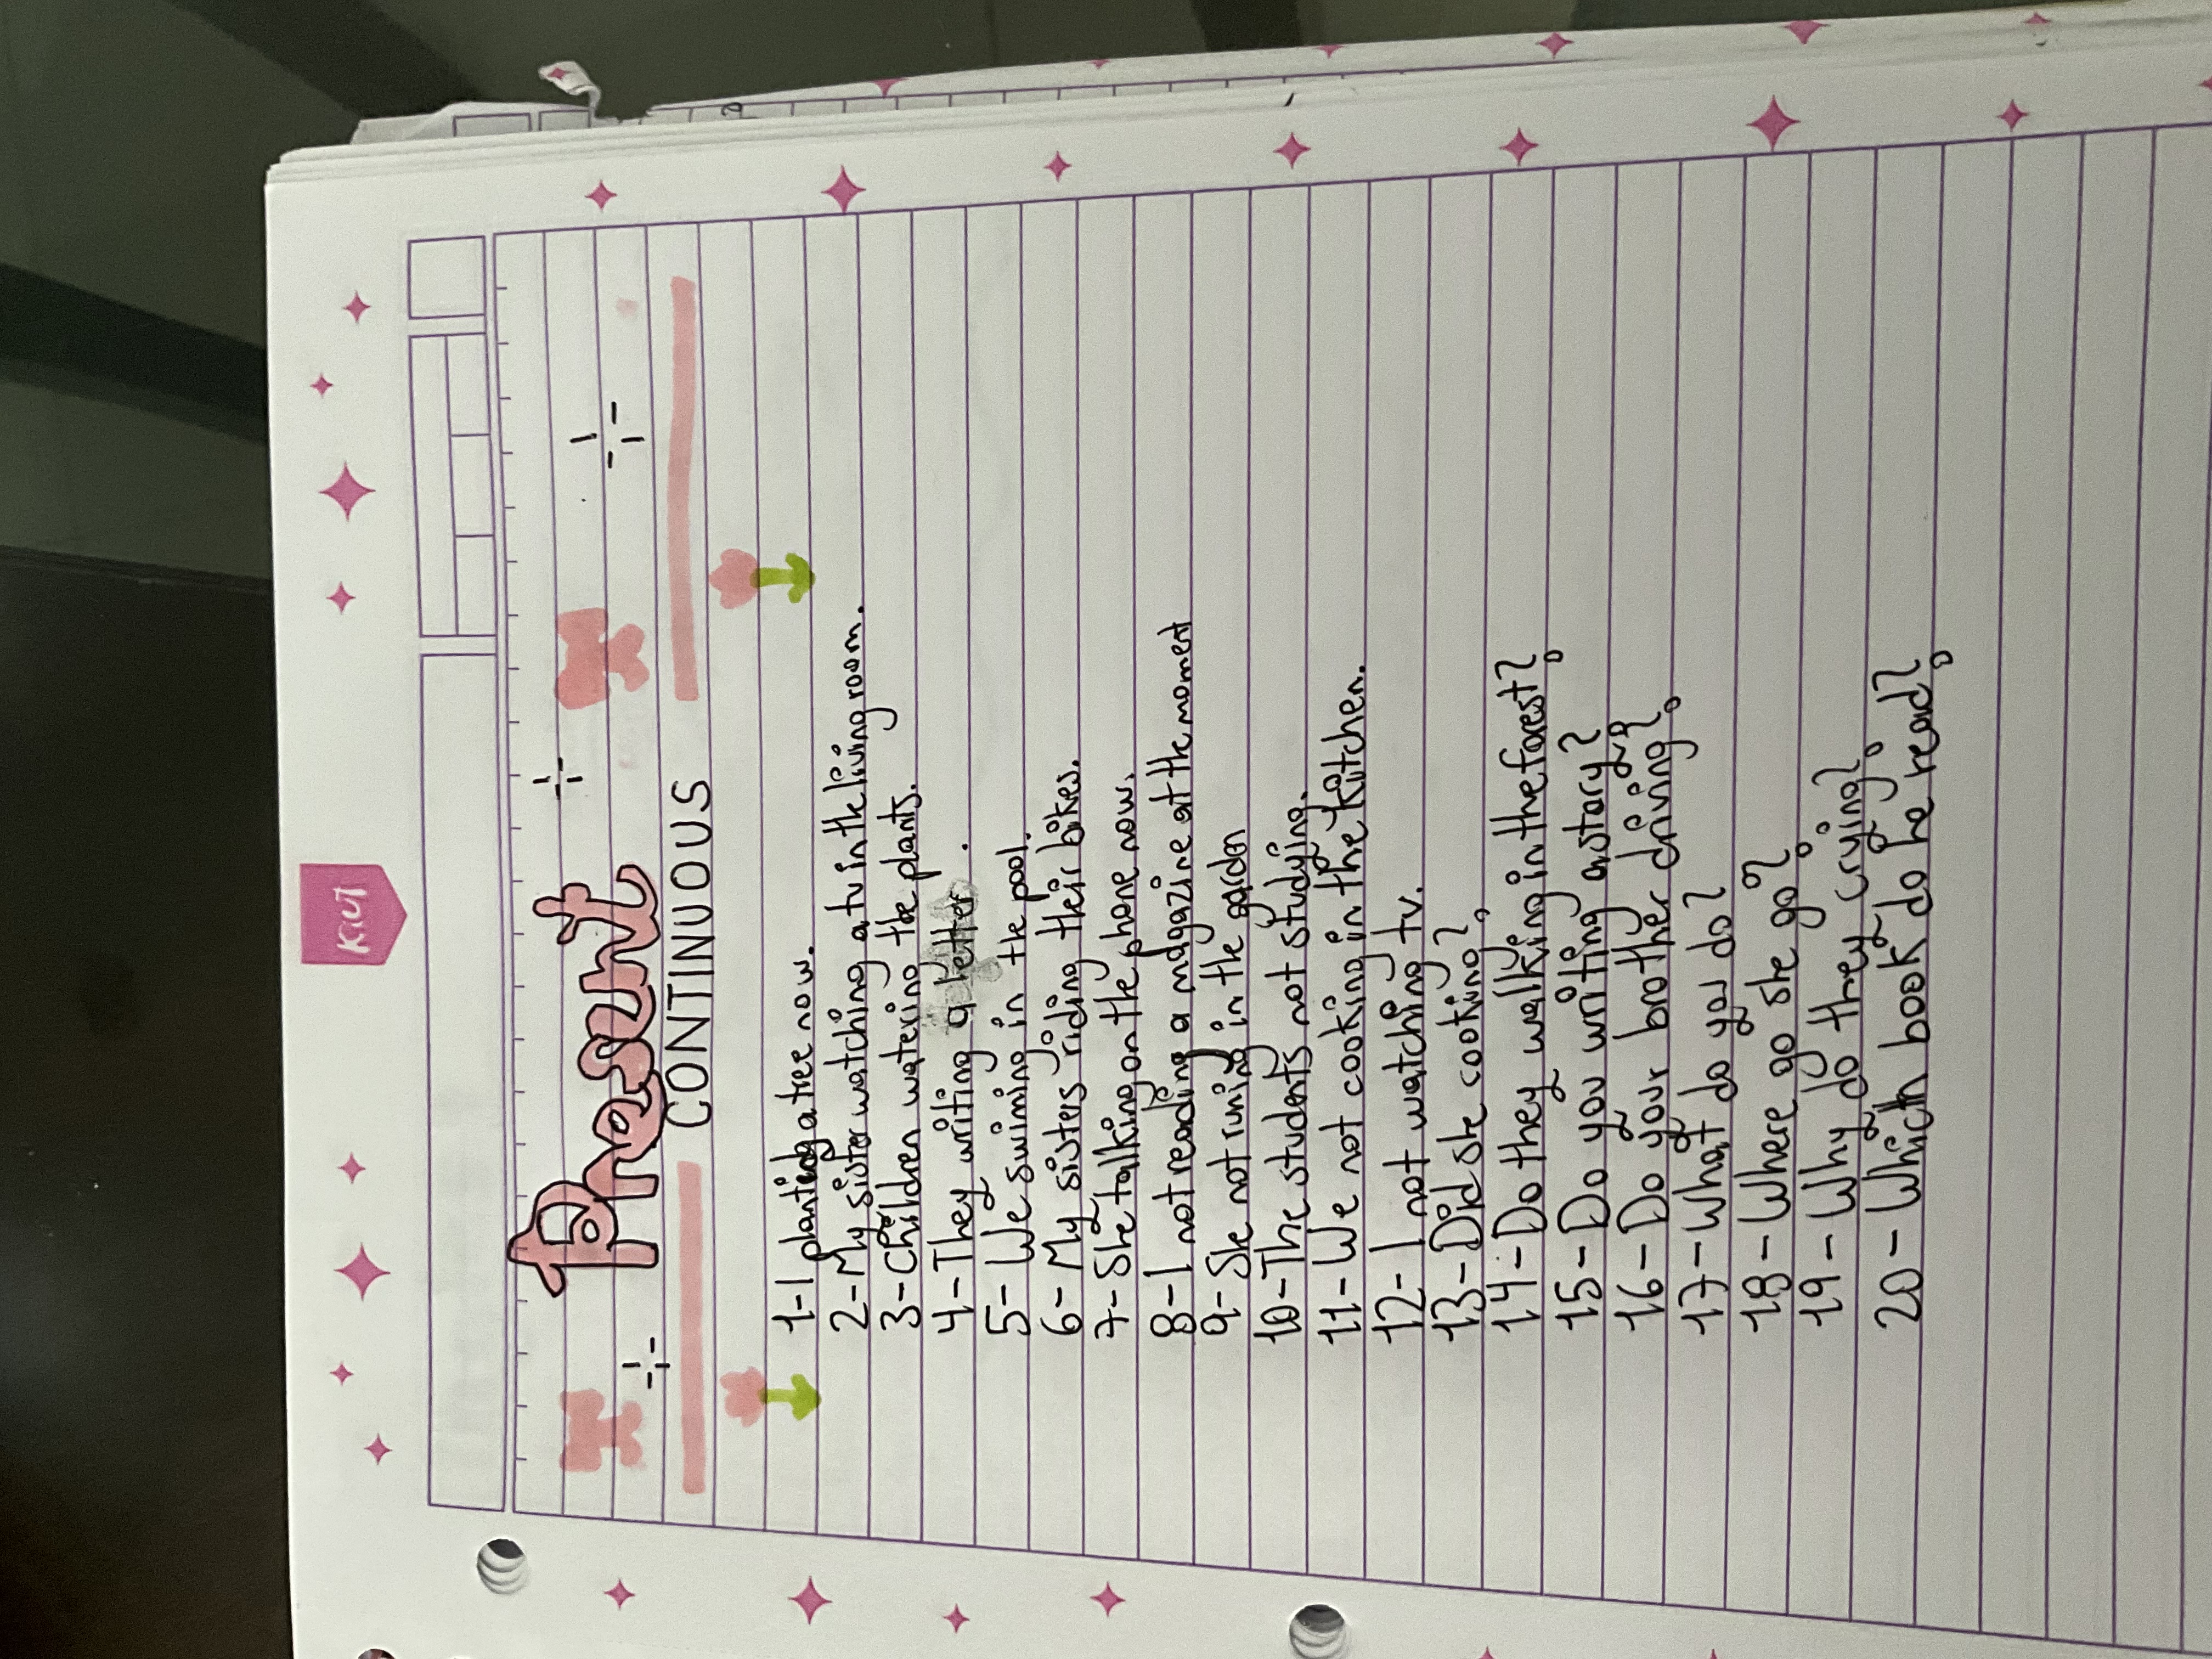 Kiut
Present
CONTINUOUS
1-I planting a tree now.
2-My sister watching a tv in the living room.
3-Children watering the plants.
4-They writing a letter.
5-We swiming in the pool.
6-My sisters riding their bikes.
7-She talking on the phone now.
8-I not reading a magazine at the moment
9-She not runing in the garden
10-The students not studying.
11-We not cooking in the kitchen.
12-I not watching tv.
13-Did she cooking?
14-Do they walking in the forest?
15-Do you writing a story?
16-Do your brother driving?
17-What do you do?
18-Where do she go?
19-Why do they crying?
20-Which book do he read?